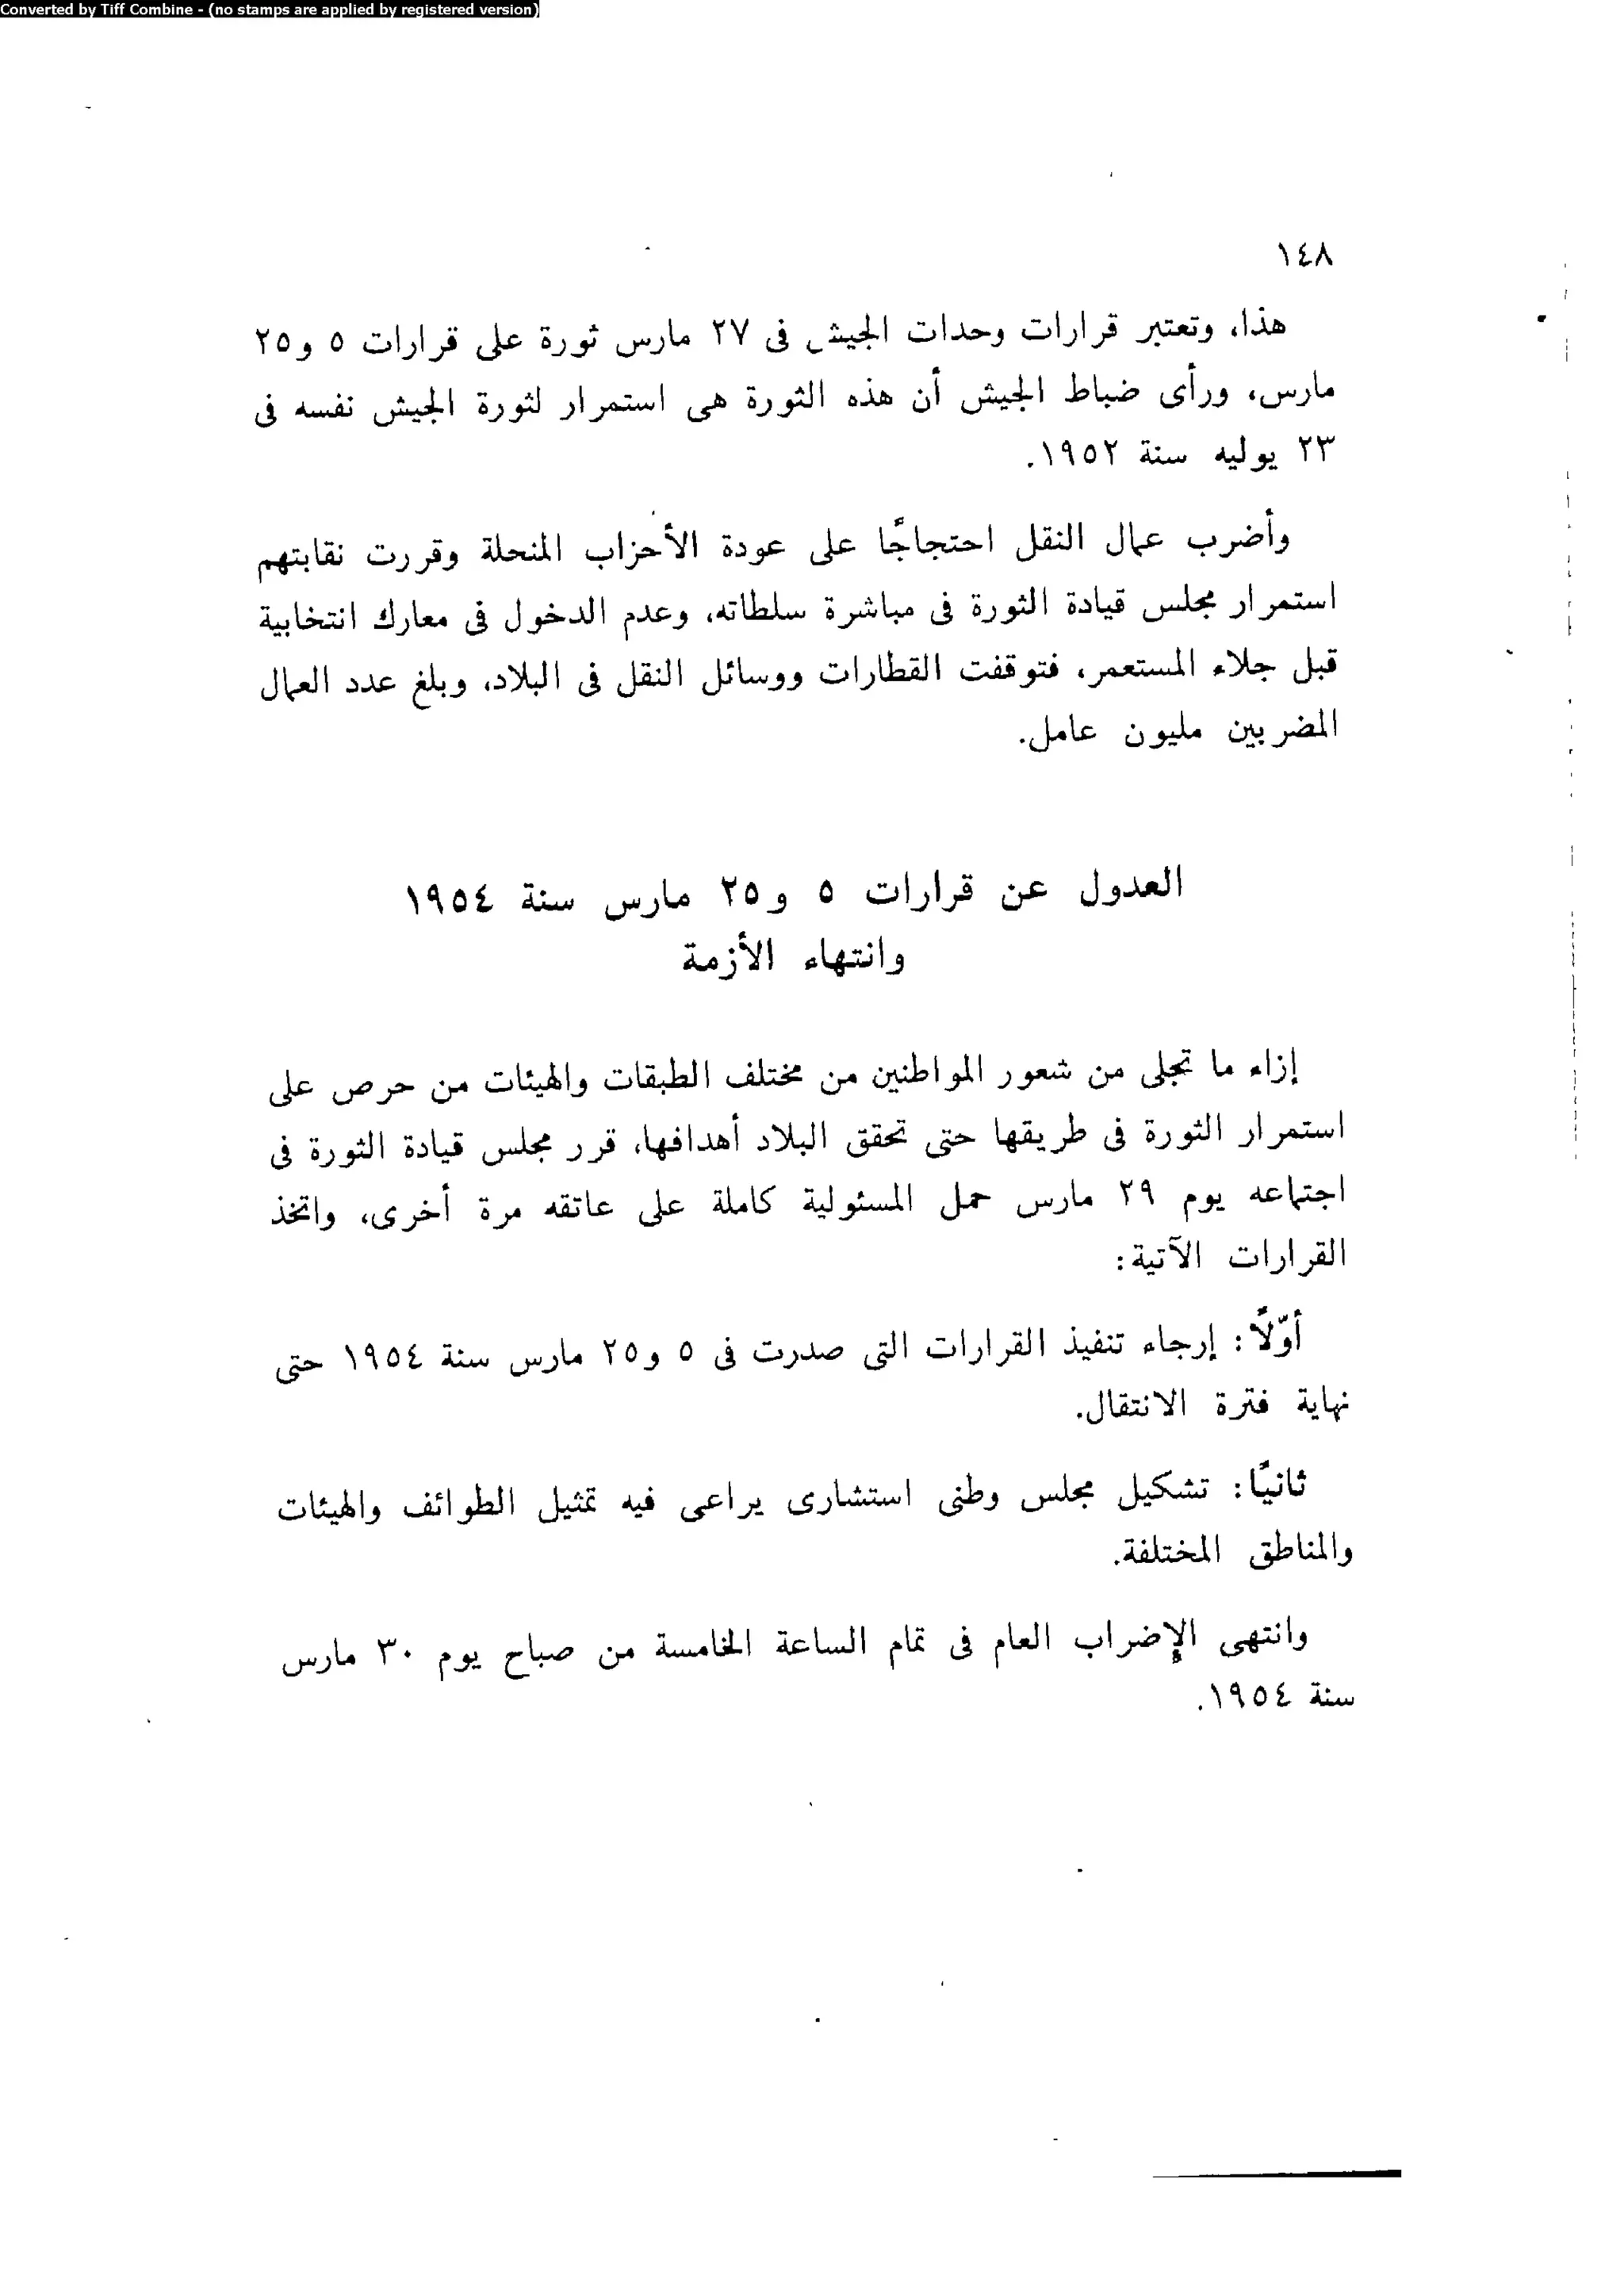 Converted by Tiff Combine - (no stamps are applied by registered version)
١٤٨
هذا، وتعتبر قرارات وحدات الجيش فى ٢٧ مارس ثورة على قرارات ٥ و٢٥
مارس، ورأى ضباط الجيش أن هذه الثورة هى استمرار لثورة الجيش نفسه فى
٢٣ يوليه سنة ١٩٥٢.
وأضرب عمال النقل احتجاجًا على عودة الأحزاب المنحلة وقررت نقابتهم
استمرار مجلس قيادة الثورة فى مباشرة سلطاته، وعدم الدخول فى معارك انتخابية
قبل جلاء المستعمر، فتوقفت القطارات ووسائل النقل فى البلاد، وبلغ عدد العمال
المضربين مليون عامل.
العدول عن قرارات ٥ و٢٥ مارس سنة ١٩٥٤
وانتهاء الأزمة
إزاء ما تجلى من شعور المواطنين من مختلف الطبقات والهيئات من حرص على
استمرار الثورة فى طريقها حتى تحقق البلاد أهدافها، قرر مجلس قيادة الثورة فى
اجتماعه يوم ٢٩ مارس حمل المسئولية كاملة على عاتقه مرة أخرى، واتخذ
القرارات الآتية:
أوّلاً: إرجاء تنفيذ القرارات التى صدرت فى ٥ و٢٥ مارس سنة ١٩٥٤ حتى
نهاية فترة الانتقال.
ثانيًا: تشكيل مجلس وطنى استشارى يراعى فيه تمثيل الطوائف والهيئات
والمناطق المختلفة.
وانتهى الإضراب العام فى تمام الساعة الخامسة من صباح يوم ٣٠ مارس
سنة ١٩٥٤.